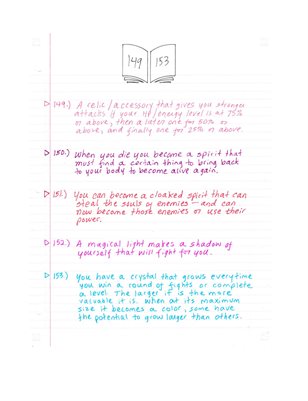 149 153
149.) A relic/accessory that gives you stronger
attacks if your HP/energy level is at 75%
or above, then a later one for 50% or
above, and finally one for 25% or above.
150.) When you die you become a spirit that
must find a certain thing to bring back
to your body to become alive again.
151.) You can become a cloaked spirit that can
steal the souls of enemies—and can
now become those enemies or use their
power.
152.) A magical light makes a shadow of
yourself that will fight for you.
153.) You have a crystal that grows everytime
you win a round of fights or complete
a level. The larger it is the more
valuable it is. When at its maximum
size it becomes a color, some have
the potential to grow larger than others.